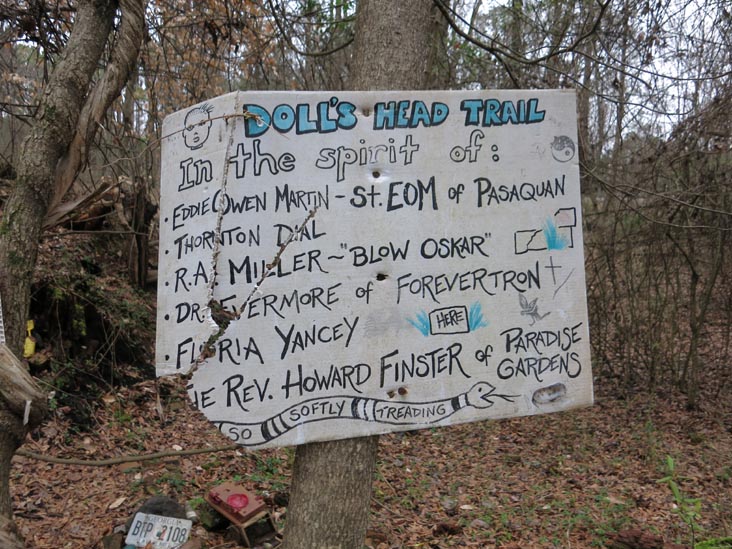 DOLL'S HEAD TRAIL
In the spirit of:
• EDDIE OWEN MARTIN - St. EOM of PASAQUAN
• THORNTON DIAL
• R.A. MILLER ~ "BLOW OSKAR"
• DR. EVERMORE of FOREVERTRON
HERE
• FLORIA YANCEY
HE REV. HOWARD FINSTER of PARADISE GARDENS
SO SOFTLY TREADING
GEORGIA
BTP 2108